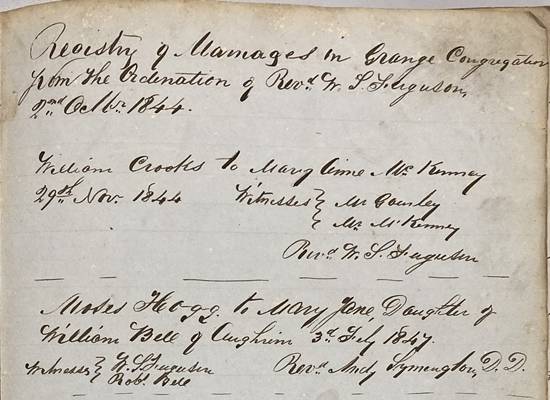 Registry of Marriages in Grange Congregation
from the Ordination of Revd. W. S. Ferguson,
2nd Octbr. 1844.
William Crooks to Mary Anne McKenney
29th Novr. 1844 Witnesses } Mr Gourley
} Mr. McKenney
Revd. W. S. Ferguson
Moses Hogg to Mary Jane, Daughter of
William Bell of Aughrim 3rd. July 1847.
Witnesses } W. S. Ferguson Revd. Andw Symington, D. D.
} Robt. Bell